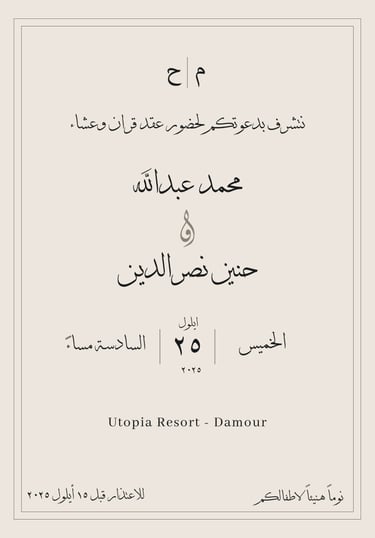 م | ح
نتشرف بدعوتكم لحضور عقد قران وعشاء
محمد عبدالله
و
حنين نصرالدين
الخميس | ايلول ٢٥ ٢٠٢٥ | السادسة مساءً
Utopia Resort - Damour
نوماً هنيئاً لاطفالكم
للاعتذار قبل ١٥ أيلول ٢٠٢٥